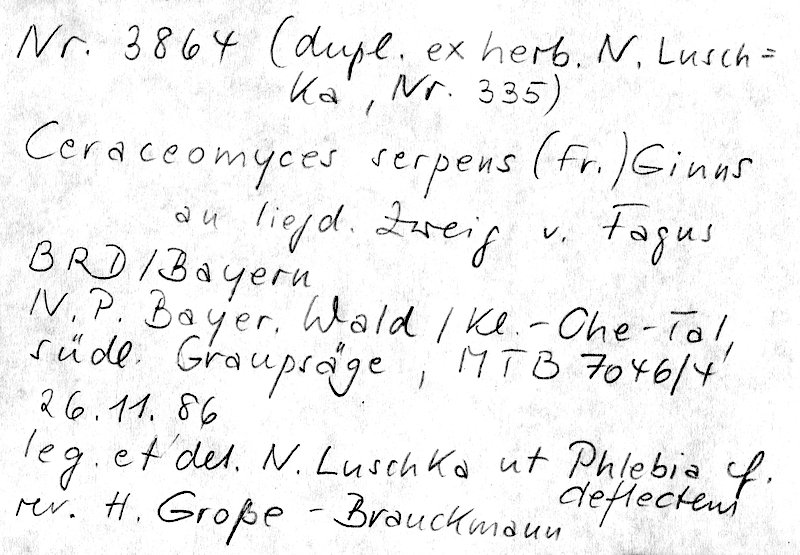 Nr. 3864 (dupl. ex herb. N. Lusch=
ka, Nr. 335)
Ceraceomyces serpens (Fr.) Ginns
an liegd. Zweig v. Fagus
BRD/Bayern
N.P. Bayer. Wald / Kl.-Ohe-Tal,
südl. Graupsäge, MTB 7046/4
26.11.86
leg. et det. N. Luschka ut Phlebia cf.
deflectens
rev. H. Große-Brauckmann